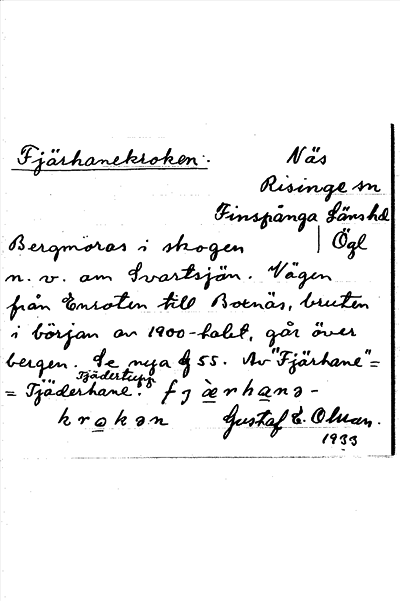 Fjärhanekroken. Näs
Risinge sn
Finspånga läns hd
Bergmöras i skogen | Ögl
n. v. om Svartsjön. Vägen
från Enroten till Botnäs, bruten
i början av 1900-talet, går över
bergen. Se nya § 55. Av "Fjärhane" =
Tjädertupp
= Tjäderhane. fjæ̀rhanə-
krokən Gustaf E. Olsson.
1933